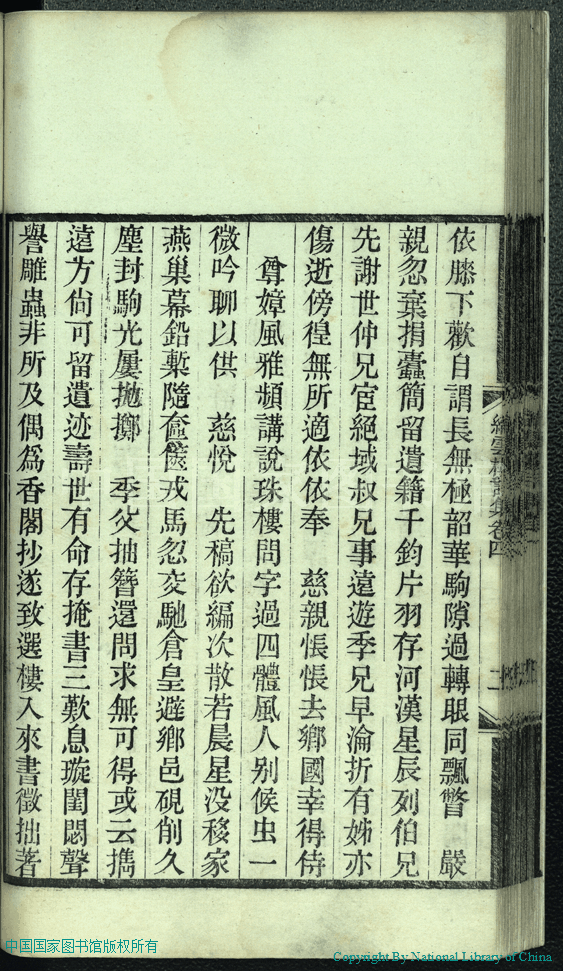 依膝下歡自謂長無極韶華駒隙過轉眼同飄瞥 嚴
親忽棄捐蠹簡留遺籍千鈞片羽存河漢星辰列伯兄
先謝世仲兄宦絕域叔兄事遠遊季兄早淪折有姊亦
傷逝傍徨無所適依依奉 慈親悵悵去鄉國幸得侍
尊嫜風雅頻講說珠樓問字過四體風人別候虫一
微吟聊以供 慈悅 先稿欲編次散若晨星没移家
燕巢幕鉛槧隨奩篋戎馬忽交馳倉皇避鄉邑硯削久
塵封駒光屢拋擲 季父抽簪還問求無可得或云擕
遠方尙可留遺迹壽世有命存掩書三歎息璇閨悶聲
譽雕蟲非所及偶爲香閣抄遂致選樓入來書徵拙著
卷四
二
中国国家图书馆版权所有
Copyright By National Library of China